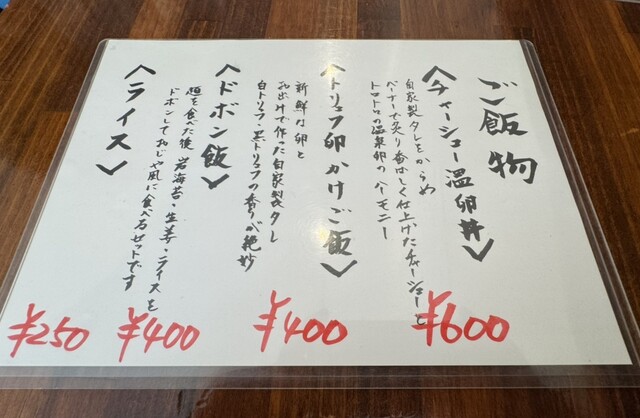 ご飯物
〈チャーシュー温卵丼〉
自家製タレをからめ
バーナーで炙り香ばしく仕上げたチャーシューと
トロトロの温泉卵のハーモニー
¥600
〈トリュフ卵かけご飯〉
新鮮な卵と
お出汁で作った自家製タレ
白トリュフ・黒トリュフの香りが絶妙
¥400
〈ドボン飯〉
麺を食べた後 岩海苔・生姜・ライスを
ドボンしておじや風に食べるセットです
¥400
〈ライス〉
¥250